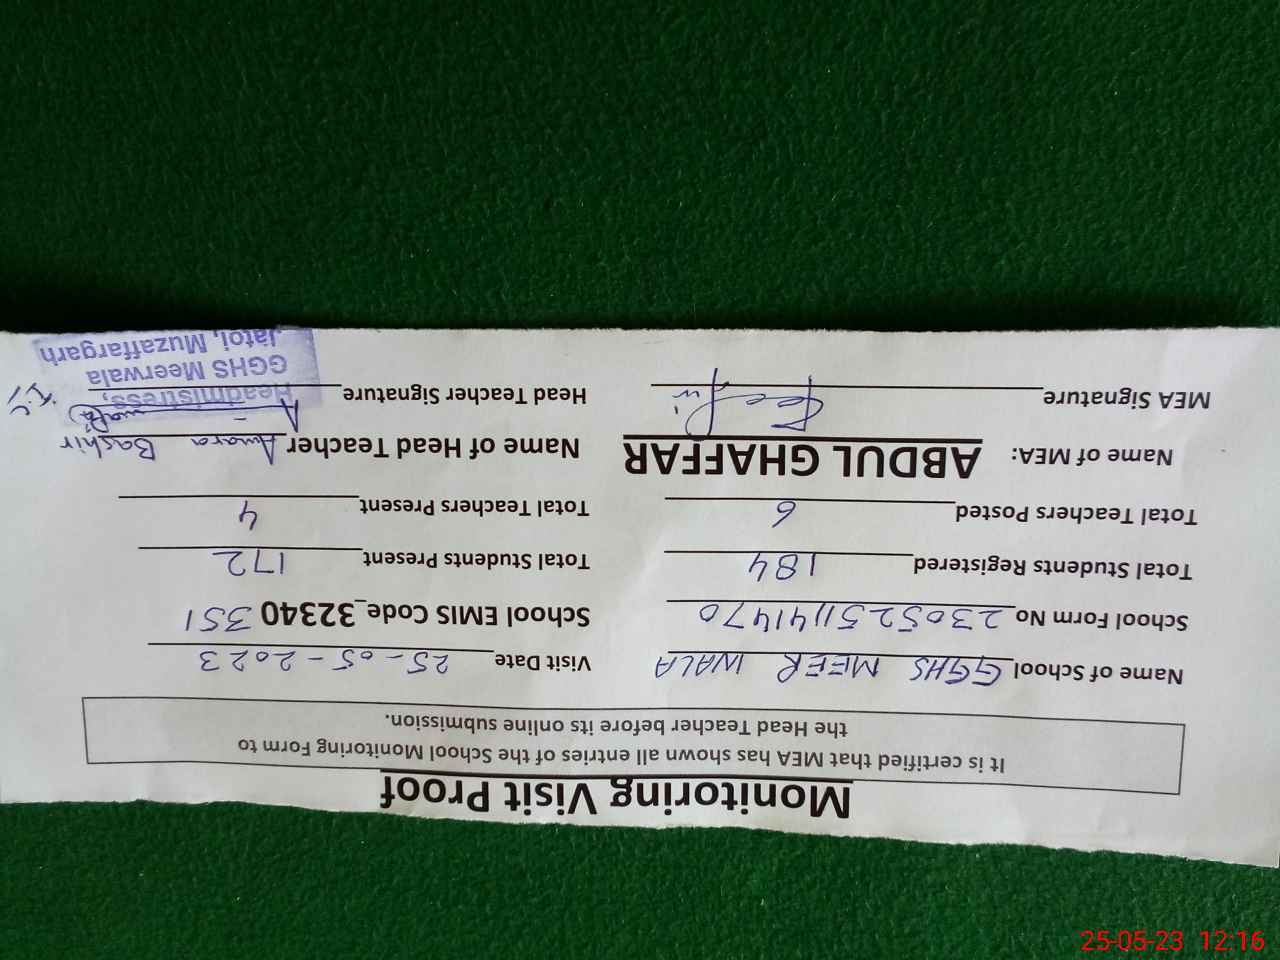 Monitoring Visit Proof
It is certified that MEA has shown all entries of the School Monitoring Form to
the Head Teacher before its online submission.
Name of School GGHS MEER WALA Visit Date 25-05-2023
School Form No 230525114147 0 School EMIS Code_32340 351
Total Students Registered 184 Total Students Present 172
Total Teachers Posted 6 Total Teachers Present 4
Name of MEA: ABDUL GHAFFAR Name of Head Teacher Amara Bashir
MEA Signature Head Teacher Signature
Headmistress,
GGHS Meerwala
Jatoi, Muzaffargarh
25-05-23 12:16